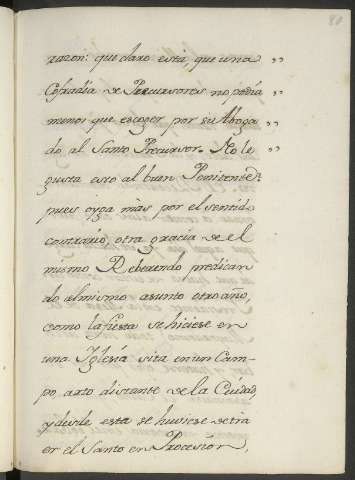 80
razon: que claro está, que una "
Cofradia de Precursores no podia "
menos que escoger por su Aboga "
do al Santo Precursor. No le "
gusta esto al buen Penitente?
pues oyga mas por el sentido
contrario, otra gracia de el
mismo Reberendo predican
do al mismo asunto otro año,
como la fiesta se hiciese en
una Iglesia sita en un Cam-
po, arto distante de la Ciudad,
y desde esta se huviese de tra
er el Santo en Procesion,